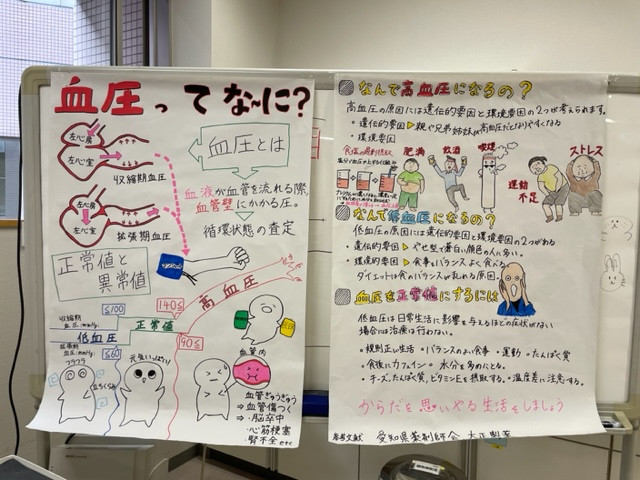 血圧ってな〜に?
左心房
左心室
収縮期血圧
左心房
左心室
拡張期血圧
血圧とは
血液が血管を流れる際、
血管壁にかかる圧。
循環状態の査定
正常値と
異常値
高血圧
140≦
≦100
収縮期
血圧:mmHg
正常値
低血圧
拡張期
血圧:mmHg
≦60
90≦
フラフラ
立ちくらみ
元気いっぱい!
血管内
血管ぎゅうぎゅう
⇒血管傷つく
⇒・脳卒中
・心筋梗塞
・腎不全 etc
なんで高血圧になるの?
高血圧の原因には遺伝的要因と環境要因の2つが考えられます。
・遺伝的要因▶親や兄弟姉妹が高血圧だとなりやすくなる
・環境要因
食塩の過剰摂取
肥満
飲酒
喫煙
運動
不足
ストレス
なんで低血圧になるの?
低血圧の原因には遺伝的要因と環境要因の2つがある
・遺伝的要因▶やせ型で蒼白い顔色の人に多い。
・環境的要因▶食事をバランスよく食べる。
ダイエットは食のバランスが乱れる原因。
血圧を正常値にするには
低血圧は日常生活に影響を与えるほどの症状がない
場合には治療は行わない。
・規則正しい生活 ・バランスのよい食事 ・運動 ・たんぱく質
・食後にカフェイン ・水分を多めにとる。
・チーズ、たんぱく質、ビタミンEを摂取する。・温度差に注意する。
からだを思いやる生活をしましょう
参考文献 愛知県薬剤師会 大正製薬